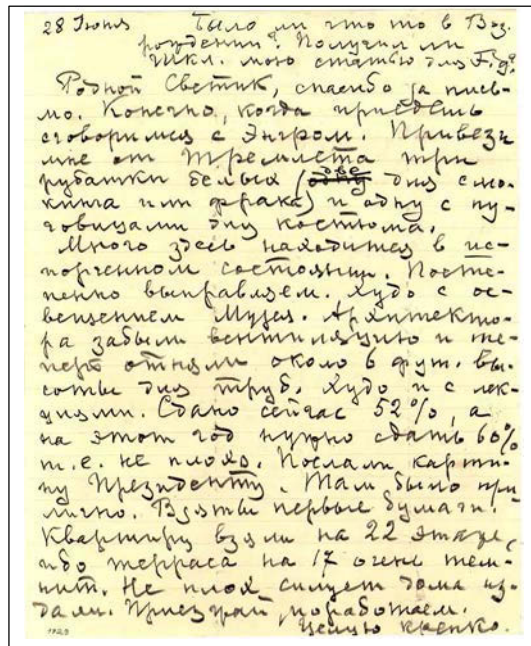 28 Июня Было ли что то в Воз.
рождении? Получил ли
Шкл. мою статью для F.g.?
Родной Светик, спасибо за пись-
мо. Конечно, когда приедешь
сговоримся с Энгром. Привези
мне от Тремлета три
рубашки белых (одну две для смо-
кинга или фрака) и одну с пу-
говицами для костюма.
Много здесь находится в ис-
порченном состоянии. Посте-
пенно выправляем. Худо с ос-
вещением Музея. Архитекто-
ра забыли вентиляцию и те-
перь отняли около 6 фут. вы-
соты для труб. Худо и с лек-
циями. Сдано сейчас 52%, а
на этот год нужно сдать 60%
т.е. не плохо. Послали карти-
ну Президенту. Там было при
лично. Взяты первые бумаги.
Квартиру взяли на 22 этаже,
ибо терраса на 17 очень тем-
нит. Не плох силует дома из-
дали. Приезжай, поработаем.
Целую крепко.
1929